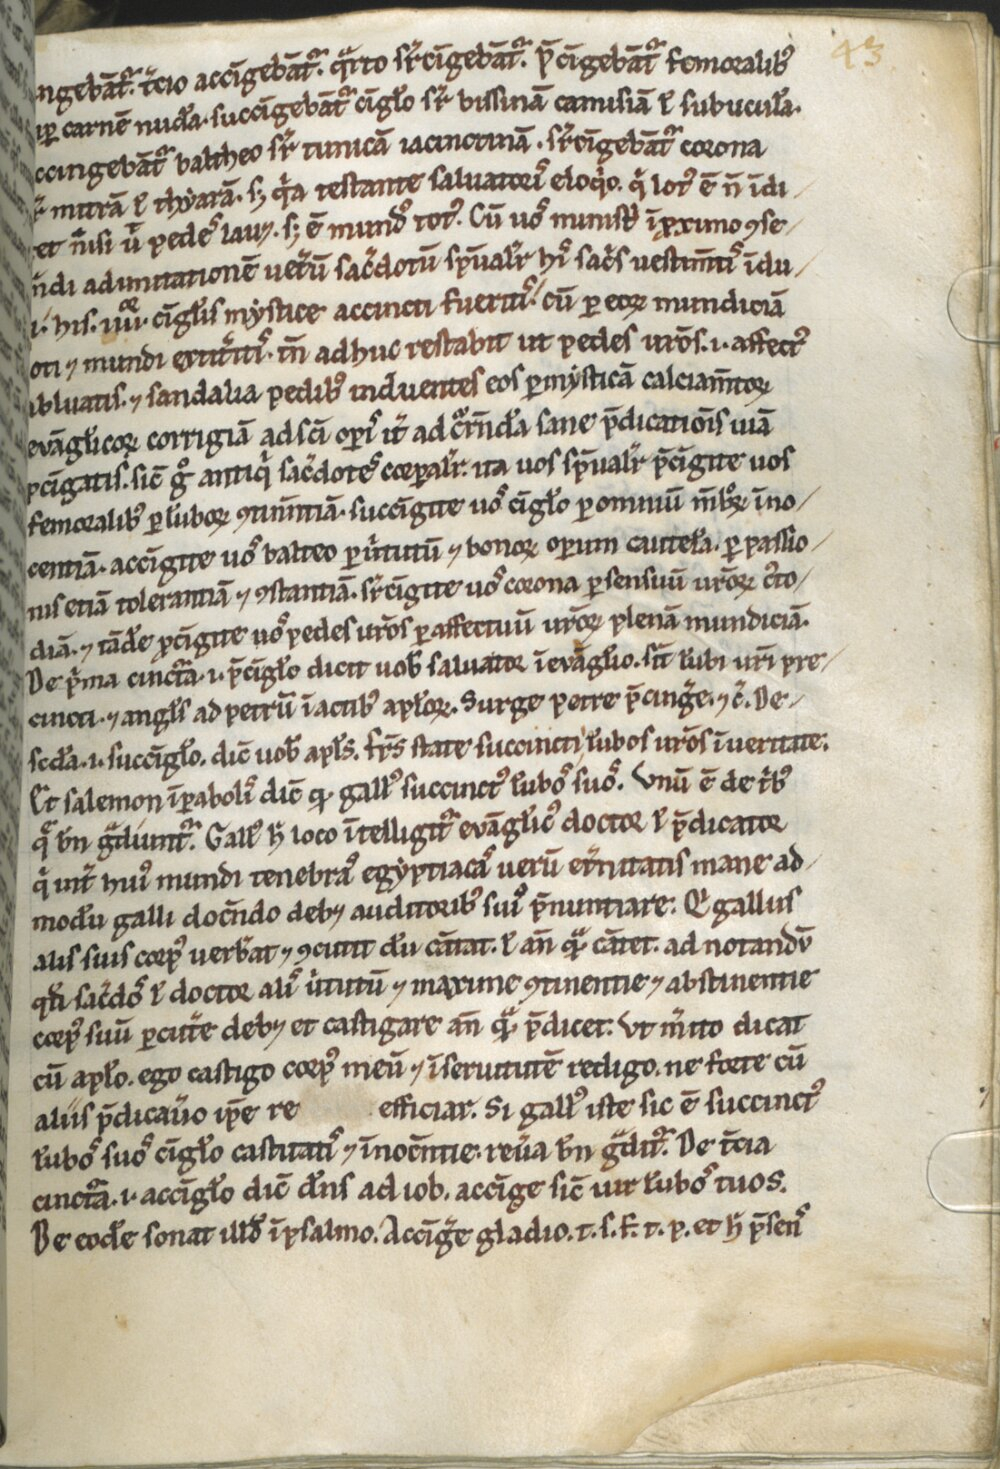 43
ngebāt᷑. t̄cio accīgebāt᷑. qͣrto sr̄cīgebāt᷑. p̄cīgebāt᷑ femoralibꝰ
carnē nudā. succīgebāt᷑ cīgło sr̄ bissinā camisiā ł subuculā.
ccingebāt᷑ baltheo sr̄ tunicā iacinctinā. sr̄cīgebāt᷑ corona
mitrā ł thyarā. sꝫ qͥa testante saluatorꝭ eloqͥo. qͥ lotꝰ ē n̄ īdi/
et nͥsi ū pedeˢ lauꝫ. sꝫ ē mundꝰ totꝰ. Cū uoˢ minist̄ ī ꝓximo ꝯse/
n̄di ad imitationē uet̄ū sac̄dotū sp̄ualr̄ hiˢ sac̄s uestim̄tiˢ īdu/
i. his. iiii. cīglis mystice accincti fueritiˢ. cū ꝑ eoꝝ mundiciā
oti ⁊ mundi extit̄itiˢ. tn̄ adhuc restabit ut pedes ur̄os .i. affectꝰ
abluatis. ⁊ sandalia pedibꝰ induentes eos ꝑ mysticā calciam̄toꝝ
evāgłicoꝝ corrigiā ad sc̄i oꝑiˢ it̄ ad sane p̄dicationis uiā
pcīgatis. sic̄ gͦ antiqͥ sac̄doteˢ corꝑalr̄. ita uos sp̄ualr̄ p̄cīgite uos
femoralibꝰ ꝑ lūboꝝ ꝯtin̄tiā. succīgite uoˢ cīgło ꝑ omniū m̄bꝝ īno/
centiā. accīgite uoˢ balteo ꝑ uͥtutū ⁊ bonoꝝ oꝑum cautelā. ꝑ passio/
nis etiā tolerantiā ⁊ ꝯstantiā. sr̄cīgite uoˢ corona ꝑ sensuū ur̄oꝝ cꝰto/
diā. ⁊ tād̄e p̄cīgite uoˢ pedes ur̄os ꝑ affectuū ur̄oꝝ plenā mundiciā.
De pͥma cinctͣa .i. p̄cīgło dicit uob̄ saluator ī evāglio. sīt lūbi ur̄i pre/
cincti. ⁊ angl̄s ad petrū ī actibꝰ apłoꝝ. Surge petre p̄cinḡe. ⁊ c̄. De/
sc̄da .i. succīgło. dic̄ uob̄ apls̄. fr̄s state succincti lūbos ur̄os ī ueritate.
Et salemon ī ꝑaboliˢ dic̄ ꝙ gallꝰ succinctꝰ lūboˢ suoˢ. Vnū ē de t̄bꝰ
qͣ bn̄ gͣdiunt᷑. Gallꝰ h̄ loco ītelligit᷑ evāglicꝰ doctor ł p̄dicator
qͥ int̄ huiꝰ mundi tenebraˢ egyptiacaˢ uerū et̄nitatis mane ad/
modū galli doc̄ndo debꝫ auditoribꝰ suiˢ p̄nuntiare. Et gallus
alis suis corpꝰ verb̄at ⁊ ꝯcutit dū cātat. ł an̄ qͣ cātet. ad notandū
qd̄ sac̄doˢ ł doctor aliˢ uͥtutū ⁊ maxime ꝯtinentie ⁊ abstinentie
corpꝰ suū ꝑcut̄e debꝫ et castigare an̄ qͣ p̄dicet. Vt m̄ito dicat
cū apło. ego castigo corpꝰ meū ⁊ ī seruitutē redigo. ne forte cū
aliis p̄dicau̅o ip̄e re efficiar. Si gallꝰ iste sic ē succinctꝰ
lūboˢ suoˢ cīgło castitatiˢ ⁊ īnoc̄ntie. reu̅a bn̄ gͣdit᷑. De t̄cia
cinctͣa .i. accīgło dic̄ dn̄s ad iob. accīge sic̄ uir lūboˢ tuos.
De eod̄e sonat illd̄ ī psalmo. Accīḡe gladio. t. s. f. t. p. et h̄ p̄senˢ